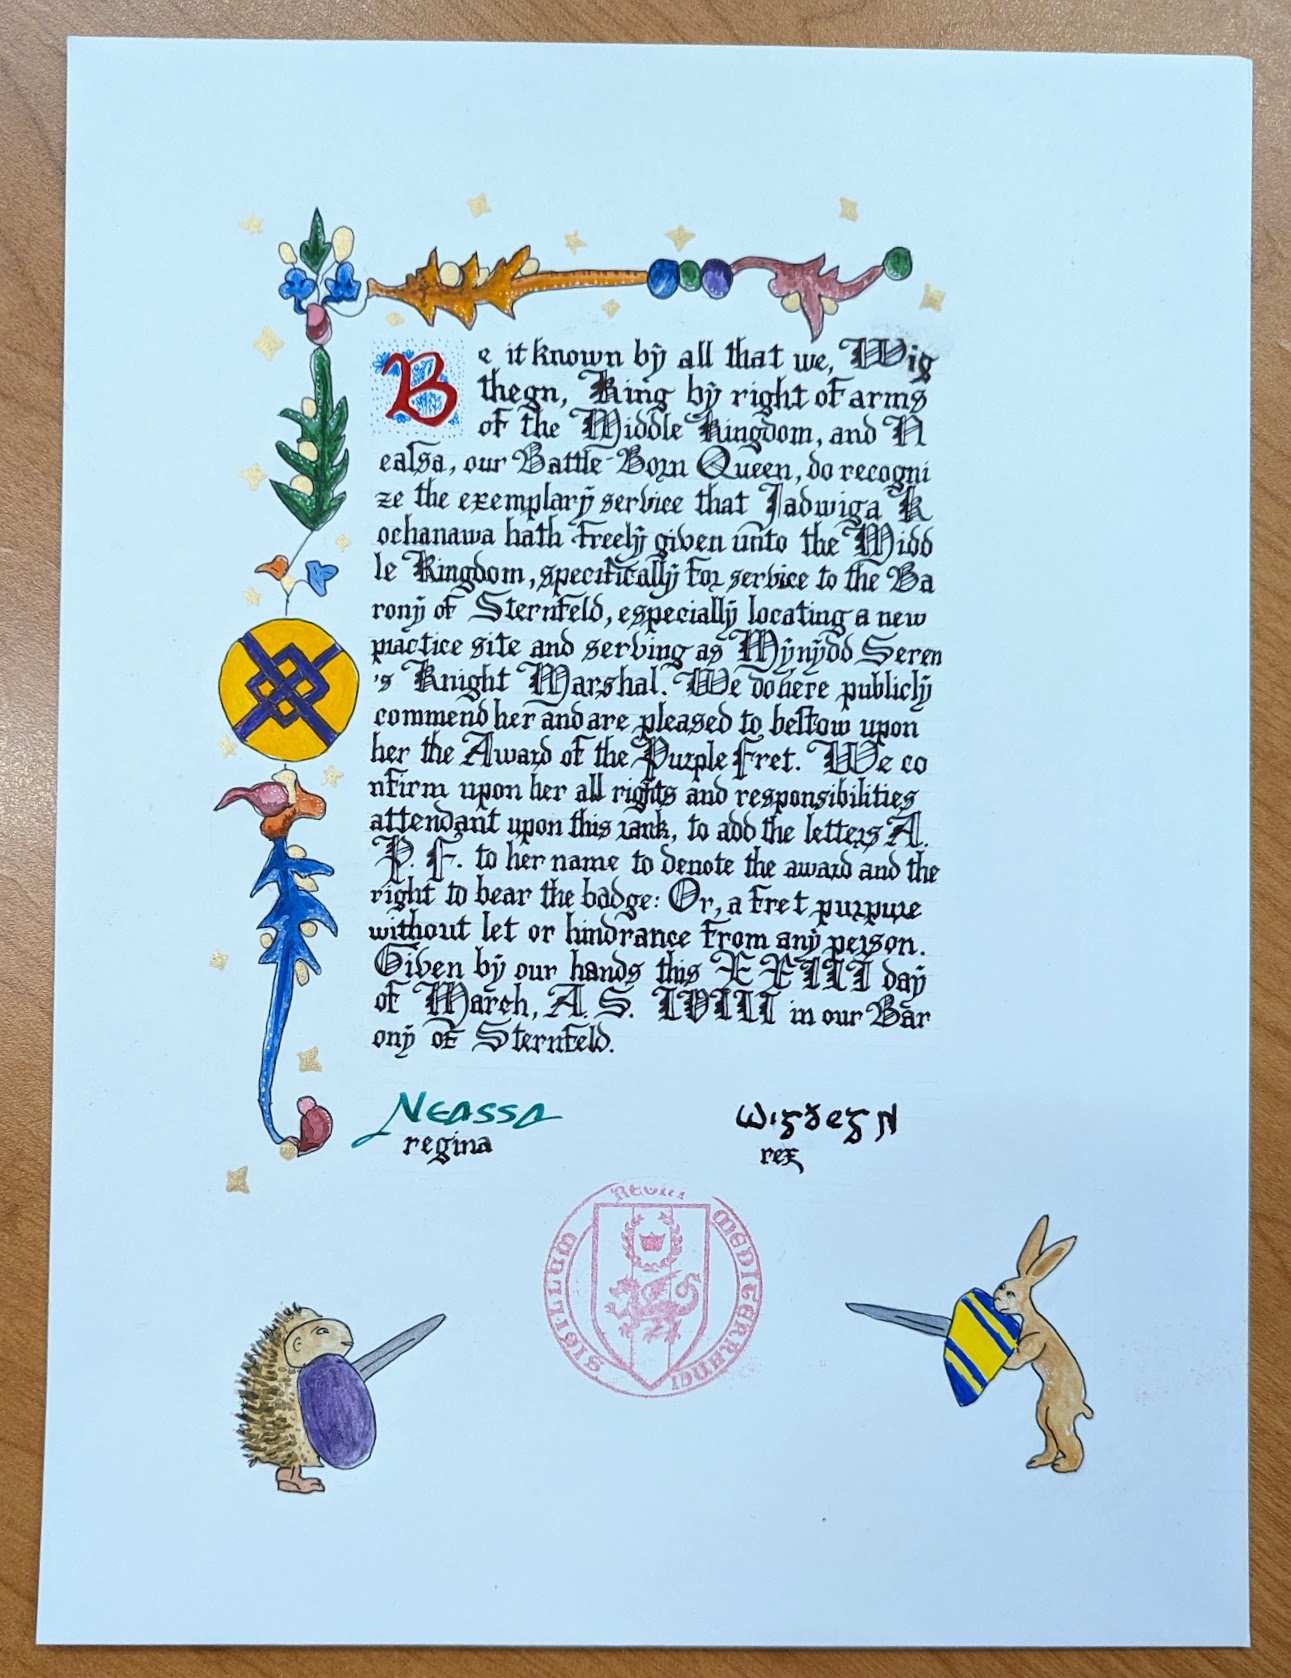 Be it known by all that we, Wig
thegn, King by right of arms
of the Middle Kingdom, and N
eassa, our Battle-Born Queen, do recogni
ze the exemplary service that Jadwiga K
ochanawa hath freely given unto the Midd
le Kingdom, specifically for service to the Ba
rony of Sternfeld, especially locating a new
practice site and serving as Mynydd Seren
's Knight Marshal. We do here publicly
commend her and are pleased to bestow upon
her the Award of the Purple Fret. We co
nfirm upon her all rights and responsibilities
attendant upon this rank, to add the letters A.
P. F. to her name to denote the award and the
right to bear the badge: Or, a fret purpure
without let or hindrance from any person.
Given by our hands this XXIII day
of March, A. S. LVIII in our Bar
ony of Sternfeld.
Neassa
regina
Wigþegn
rex
SIGILLUM REGNI MEDITERRANEI